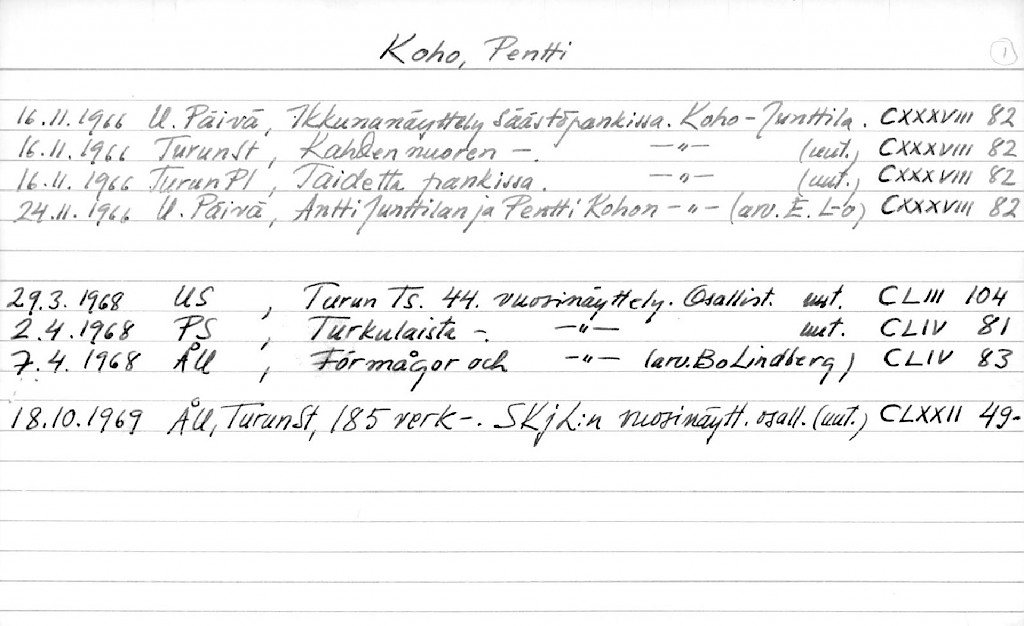 Koho, Pentti 1
16.11.1966 U. Päivä, Ikkunanäyttely Säästöpankissa. Koho-Junttila. CXXXVIII 82
16.11.1966 TurunSt, Kahden nuoren -. -"- (uut.) CXXXVIII 82
16.11.1966 TurunPl, Taidetta pankissa. -"- (uut.) CXXXVIII 82
24.11.1966 U. Päivä, Antti Junttilan ja Pentti Kohon -"- (arv. E. L-o) CXXXVIII 82
29.3.1968 US, Turun Ts. 44. vuosinäyttely. Osallist. uut. CLIII 104
2.4.1968 PS, Turkulaista -. -"- uut. CLIV 81
7.4.1968 ÅU, Förmågor och -"- (arv. Bo Lindberg) CLIV 83
18.10.1969 ÅU, TurunSt, 185 verk -. SKjL:n vuosinäytt. osall. (uut.) CLXXII 49-